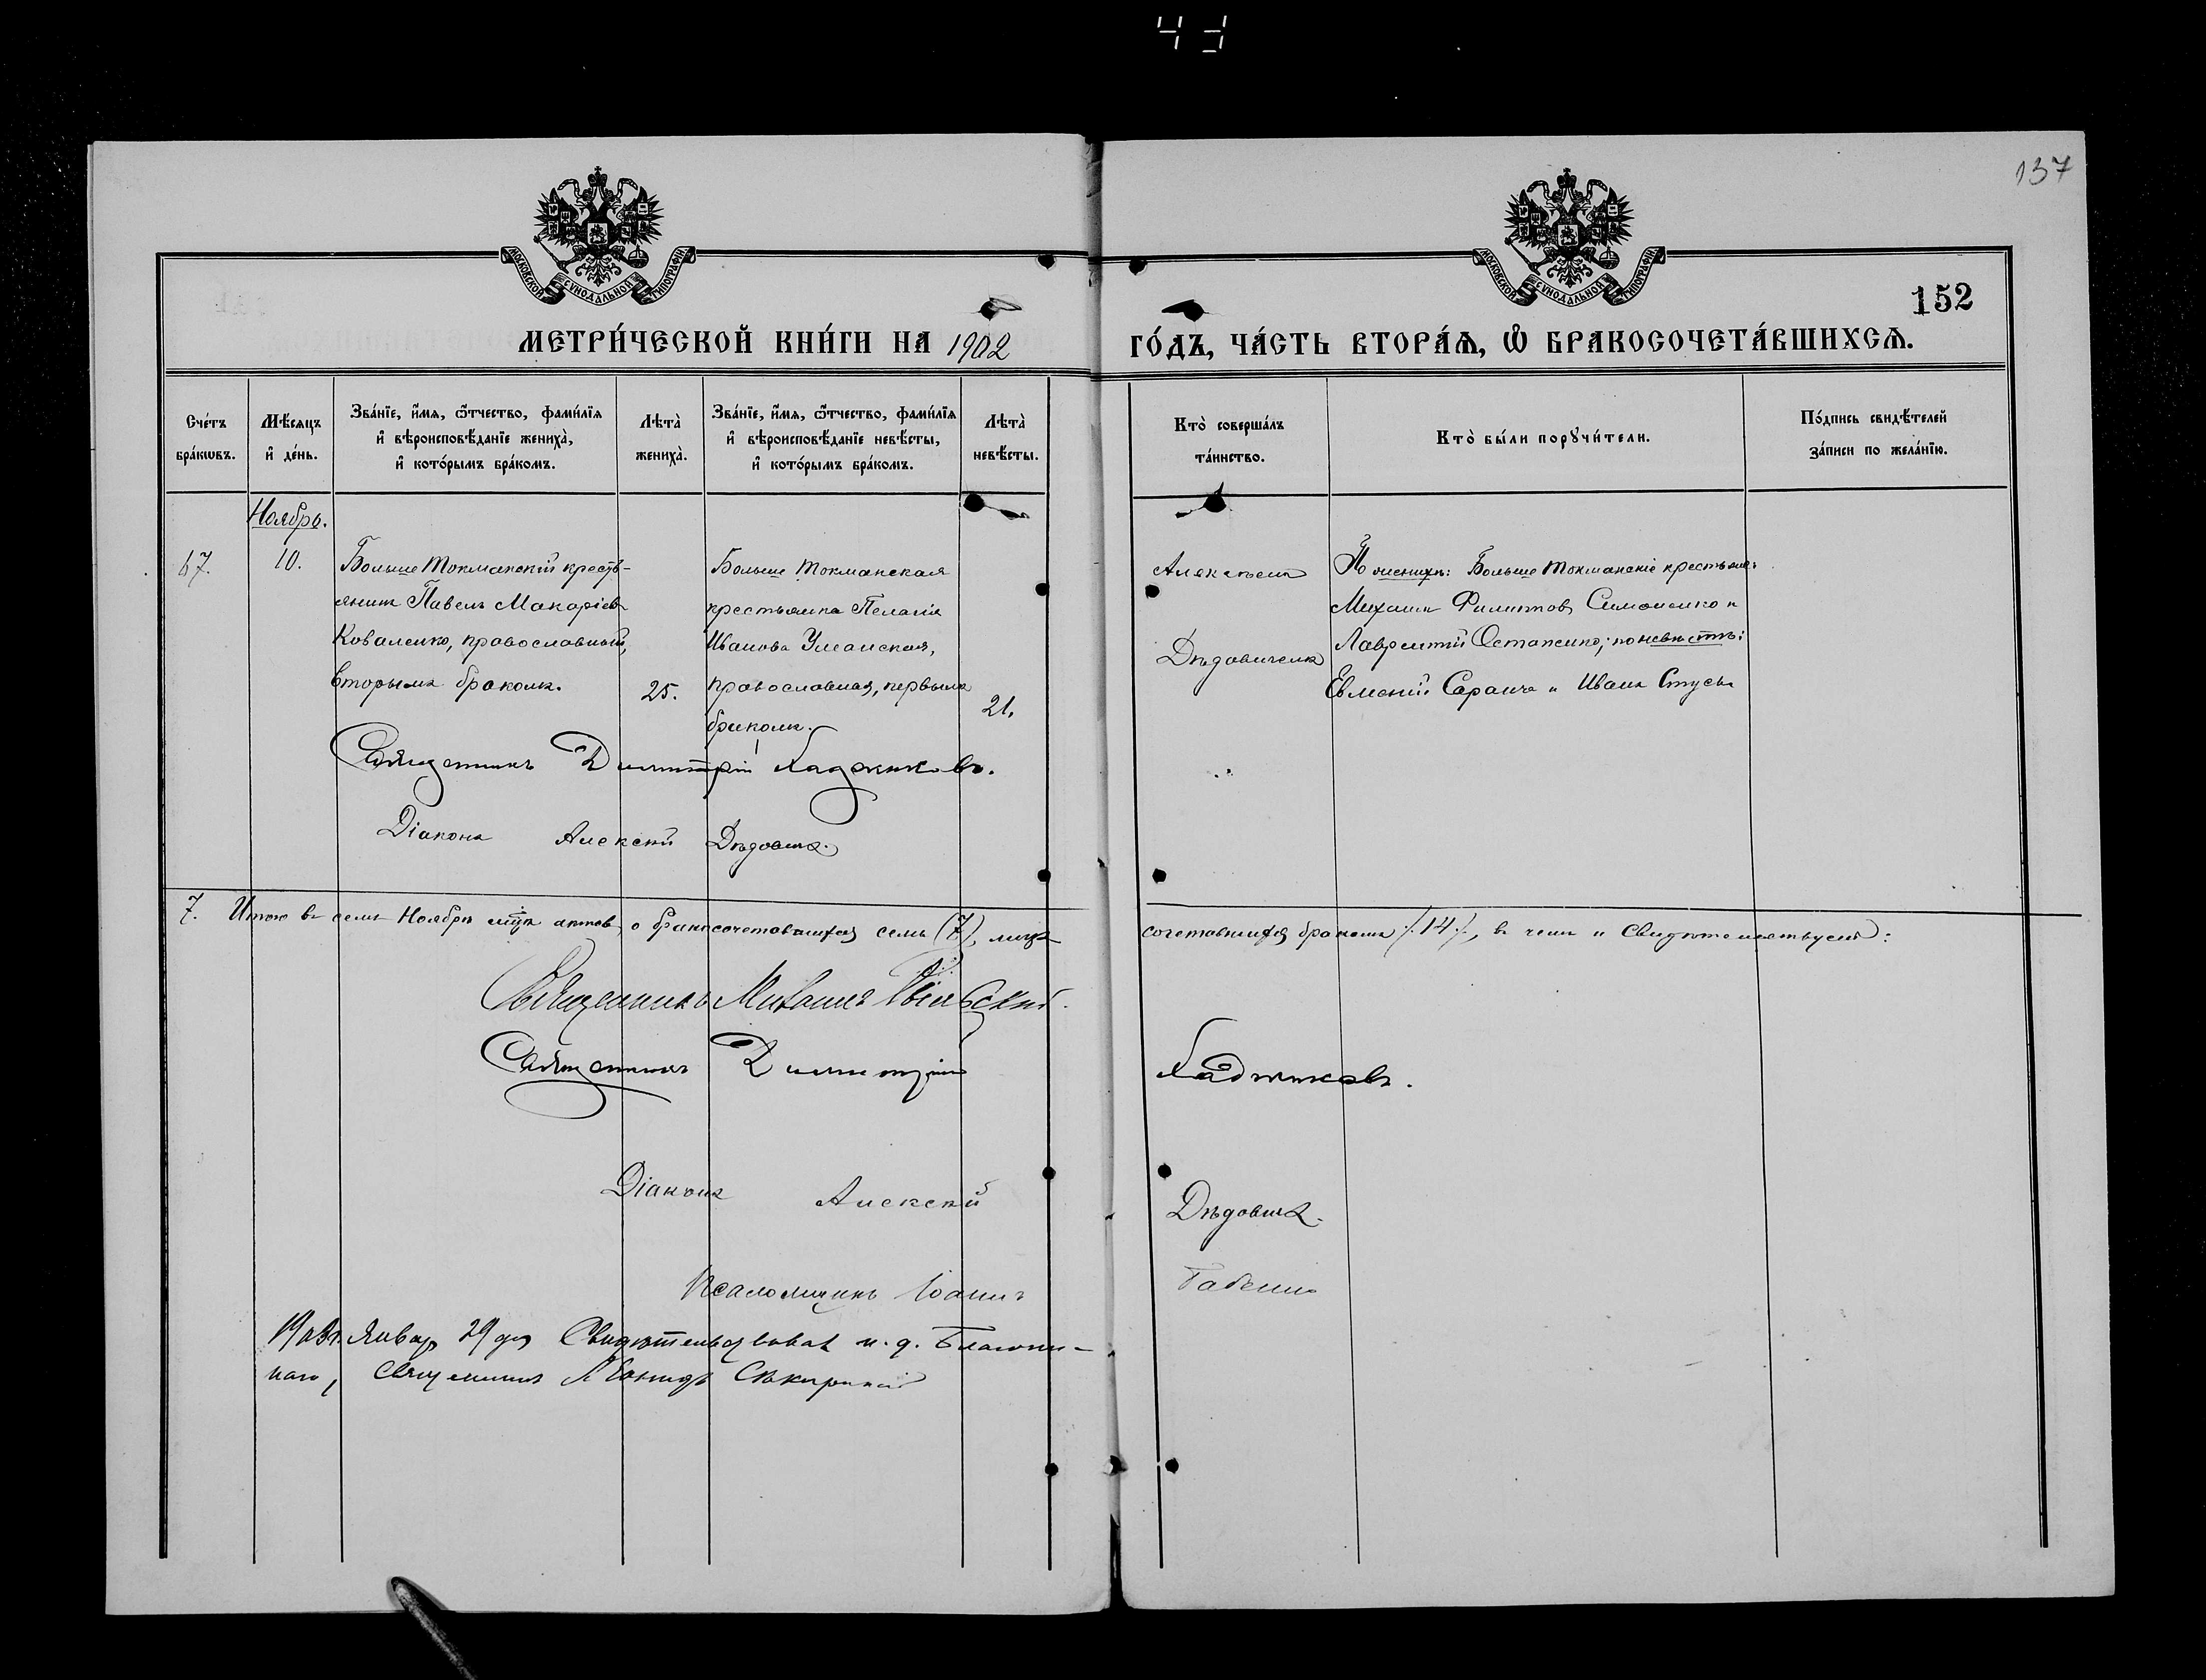 137
МОСКОВСКОЙ СѴНОДАЛЬНОЙ ТИПОГРАФІИ
МОСКОВСКОЙ СѴНОДАЛЬНОЙ ТИПОГРАФІИ
152
МЕТРИ́ЧЕСКОЙ КНИ́ГИ НА 1902 ГО́ДЪ, ЧА́СТЬ ВТОРА́Ѧ, Ѽ БРАКОСОЧЕТА́ВШИХСѦ.
Сче́тъ
бра́кѡвъ.
Мѣ́сяцъ
и҆ де́нь.
Зва́нїе, и҆́мя, ѻ҆́тчество, фами́лїя
и҆ вѣроисповѣ́данїе жениха̀,
и҆ кото́рымъ бра́комъ.
Лѣта̀
жениха̀.
Зва́нїе, и҆́мя, ѻ҆́тчество, фами́лїя
и҆ вѣроисповѣ́данїе невѣ́сты,
и҆ кото́рымъ бра́комъ.
Лѣта̀
невѣ́сты.
Кто̀ соверша́лъ
та́инство.
Кто̀ бы́ли порꙋчи́тели.
По́дпись свидѣ́телей
за́писи по жела́нїю.
Ноябрь.
67.
10.
Больше Токмакскій кресть-
янинъ Павелъ Макаріевъ
Коваленко, православный,
вторымъ бракомъ.
25.
Больше Токмакская
крестьянка Пелагія
Иванова Уманская,
православная, первымъ
бракомъ.
21.
Алексѣемъ
Дѣдовичемъ
По женихѣ: Больше Токмакскіе крестьяне:
Михаилъ Филиповъ Симоненко и
Лаврентій Остапенко; по невѣстѣ:
Евменій Саранча и Иванъ Стусь
Священникъ Димитрій Хаджиковъ.
Діаконъ Алексѣй Дѣдовичъ.
7. Итого въ семъ Ноябрѣ мцѣ актовъ о бракосочетавшихся семь (7), лицъ сочетавшихся бракомъ /14/, въ чемъ и свидѣтельствуемъ:
Священникъ Михаилъ
Священникъ Димитрій Хаджиковъ.
Діаконъ Алексѣй Дѣдовичъ.
Псаломщикъ Іоаннъ
1903 г. Январ 29 дня Свидѣтельствовалъ и. д. Благочин-
наго, священникъ Леонидъ